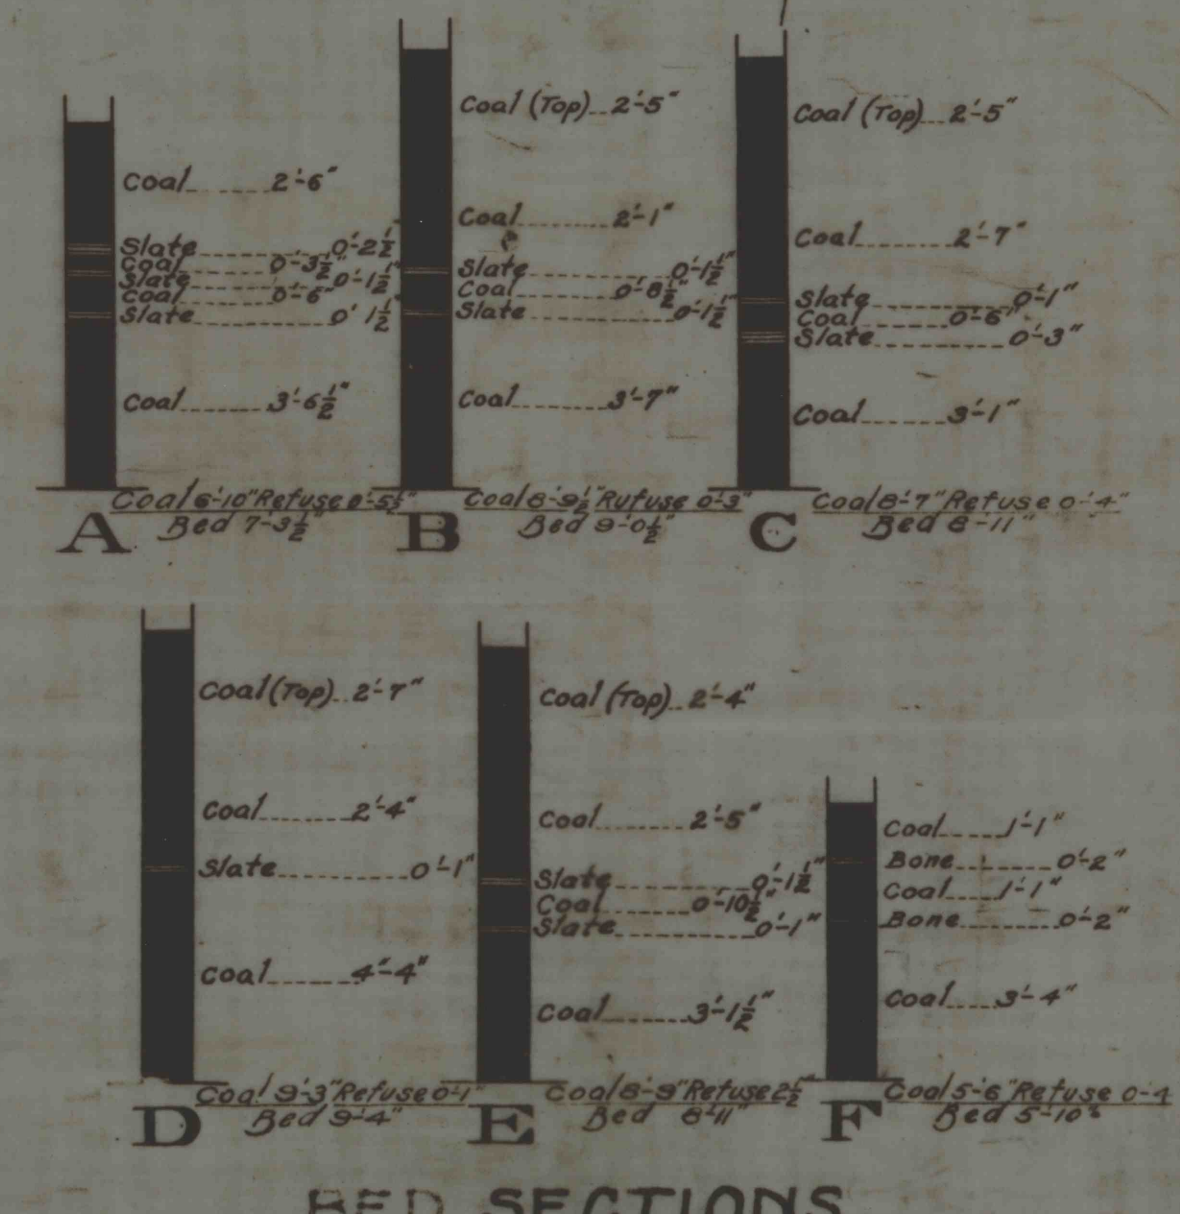 Coal 2'-6"
Slate 0'-2½"
Coal 0'-3½"
Slate 0'-1½"
Coal 0'-6"
Slate 0' 1½"
Coal 3'-6½"
Coal 6'-10" Refuse 0'-5½"
Bed 7'-3½"
A
Coal (Top) 2'-5"
Coal 2'-1"
Slate 0'-1½"
Coal 0'-8½"
Slate 0'-1½"
Coal 3'-7"
Coal 8'-9½" Rufuse 0'-3"
Bed 9'-0½"
B
Coal (Top) 2'-5"
Coal 2'-7"
Slate 0'-1"
Coal 0'-6"
Slate 0'-3"
Coal 3'-1"
Coal 8'-7" Refuse 0'-4"
Bed 8'-11"
C
Coal (Top) 2'-7"
Coal 2'-4"
Slate 0'-1"
Coal 4'-4"
Coal 9'-3" Refuse 0'-1"
Bed 9'-4"
D
Coal (Top) 2'-4"
Coal 2'-5"
Slate 0'-1½"
Coal 0'-10½"
Slate 0'-1"
Coal 3'-1½"
Coal 8'-9" Refuse 2½"
Bed 8'-11"
E
Coal 1'-1"
Bone 0'-2"
Coal 1'-1"
Bone 0'-2"
Coal 3'-4"
Coal 5'-6" Refuse 0'-4
Bed 5'-10"
F
BED SECTIONS